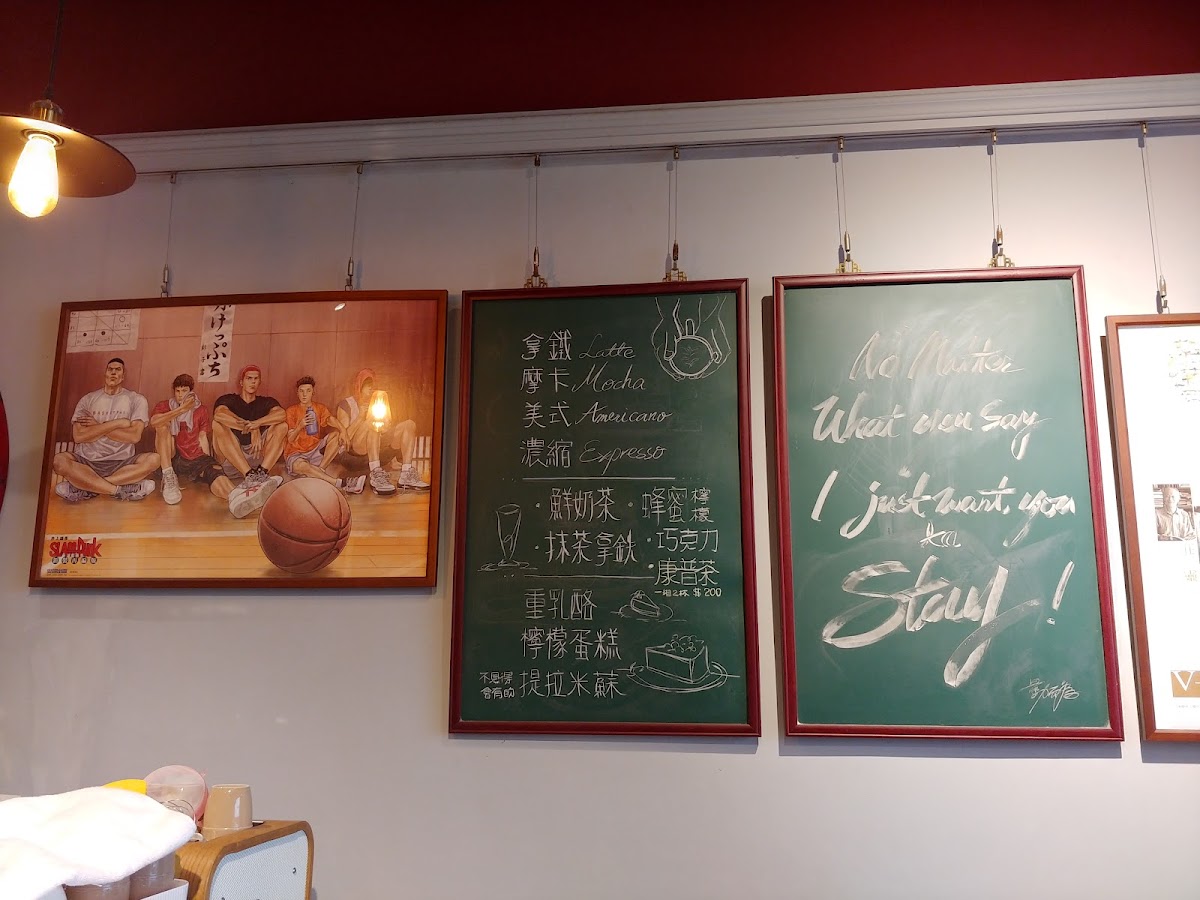 かけっぷち
井上雄彦
SLAM DUNK
拿鐵 Latte
摩卡 Mocha
美式 Americano
濃縮 Expresso
·鮮奶茶 ·蜂蜜檸檬
·抹茶拿鉄 ·巧克力
·康普茶
$200
重乳酪
檸檬蛋糕
不見得會有的 提拉米蘇
No Matter
What ever Say
I just want, you
Stay!
V